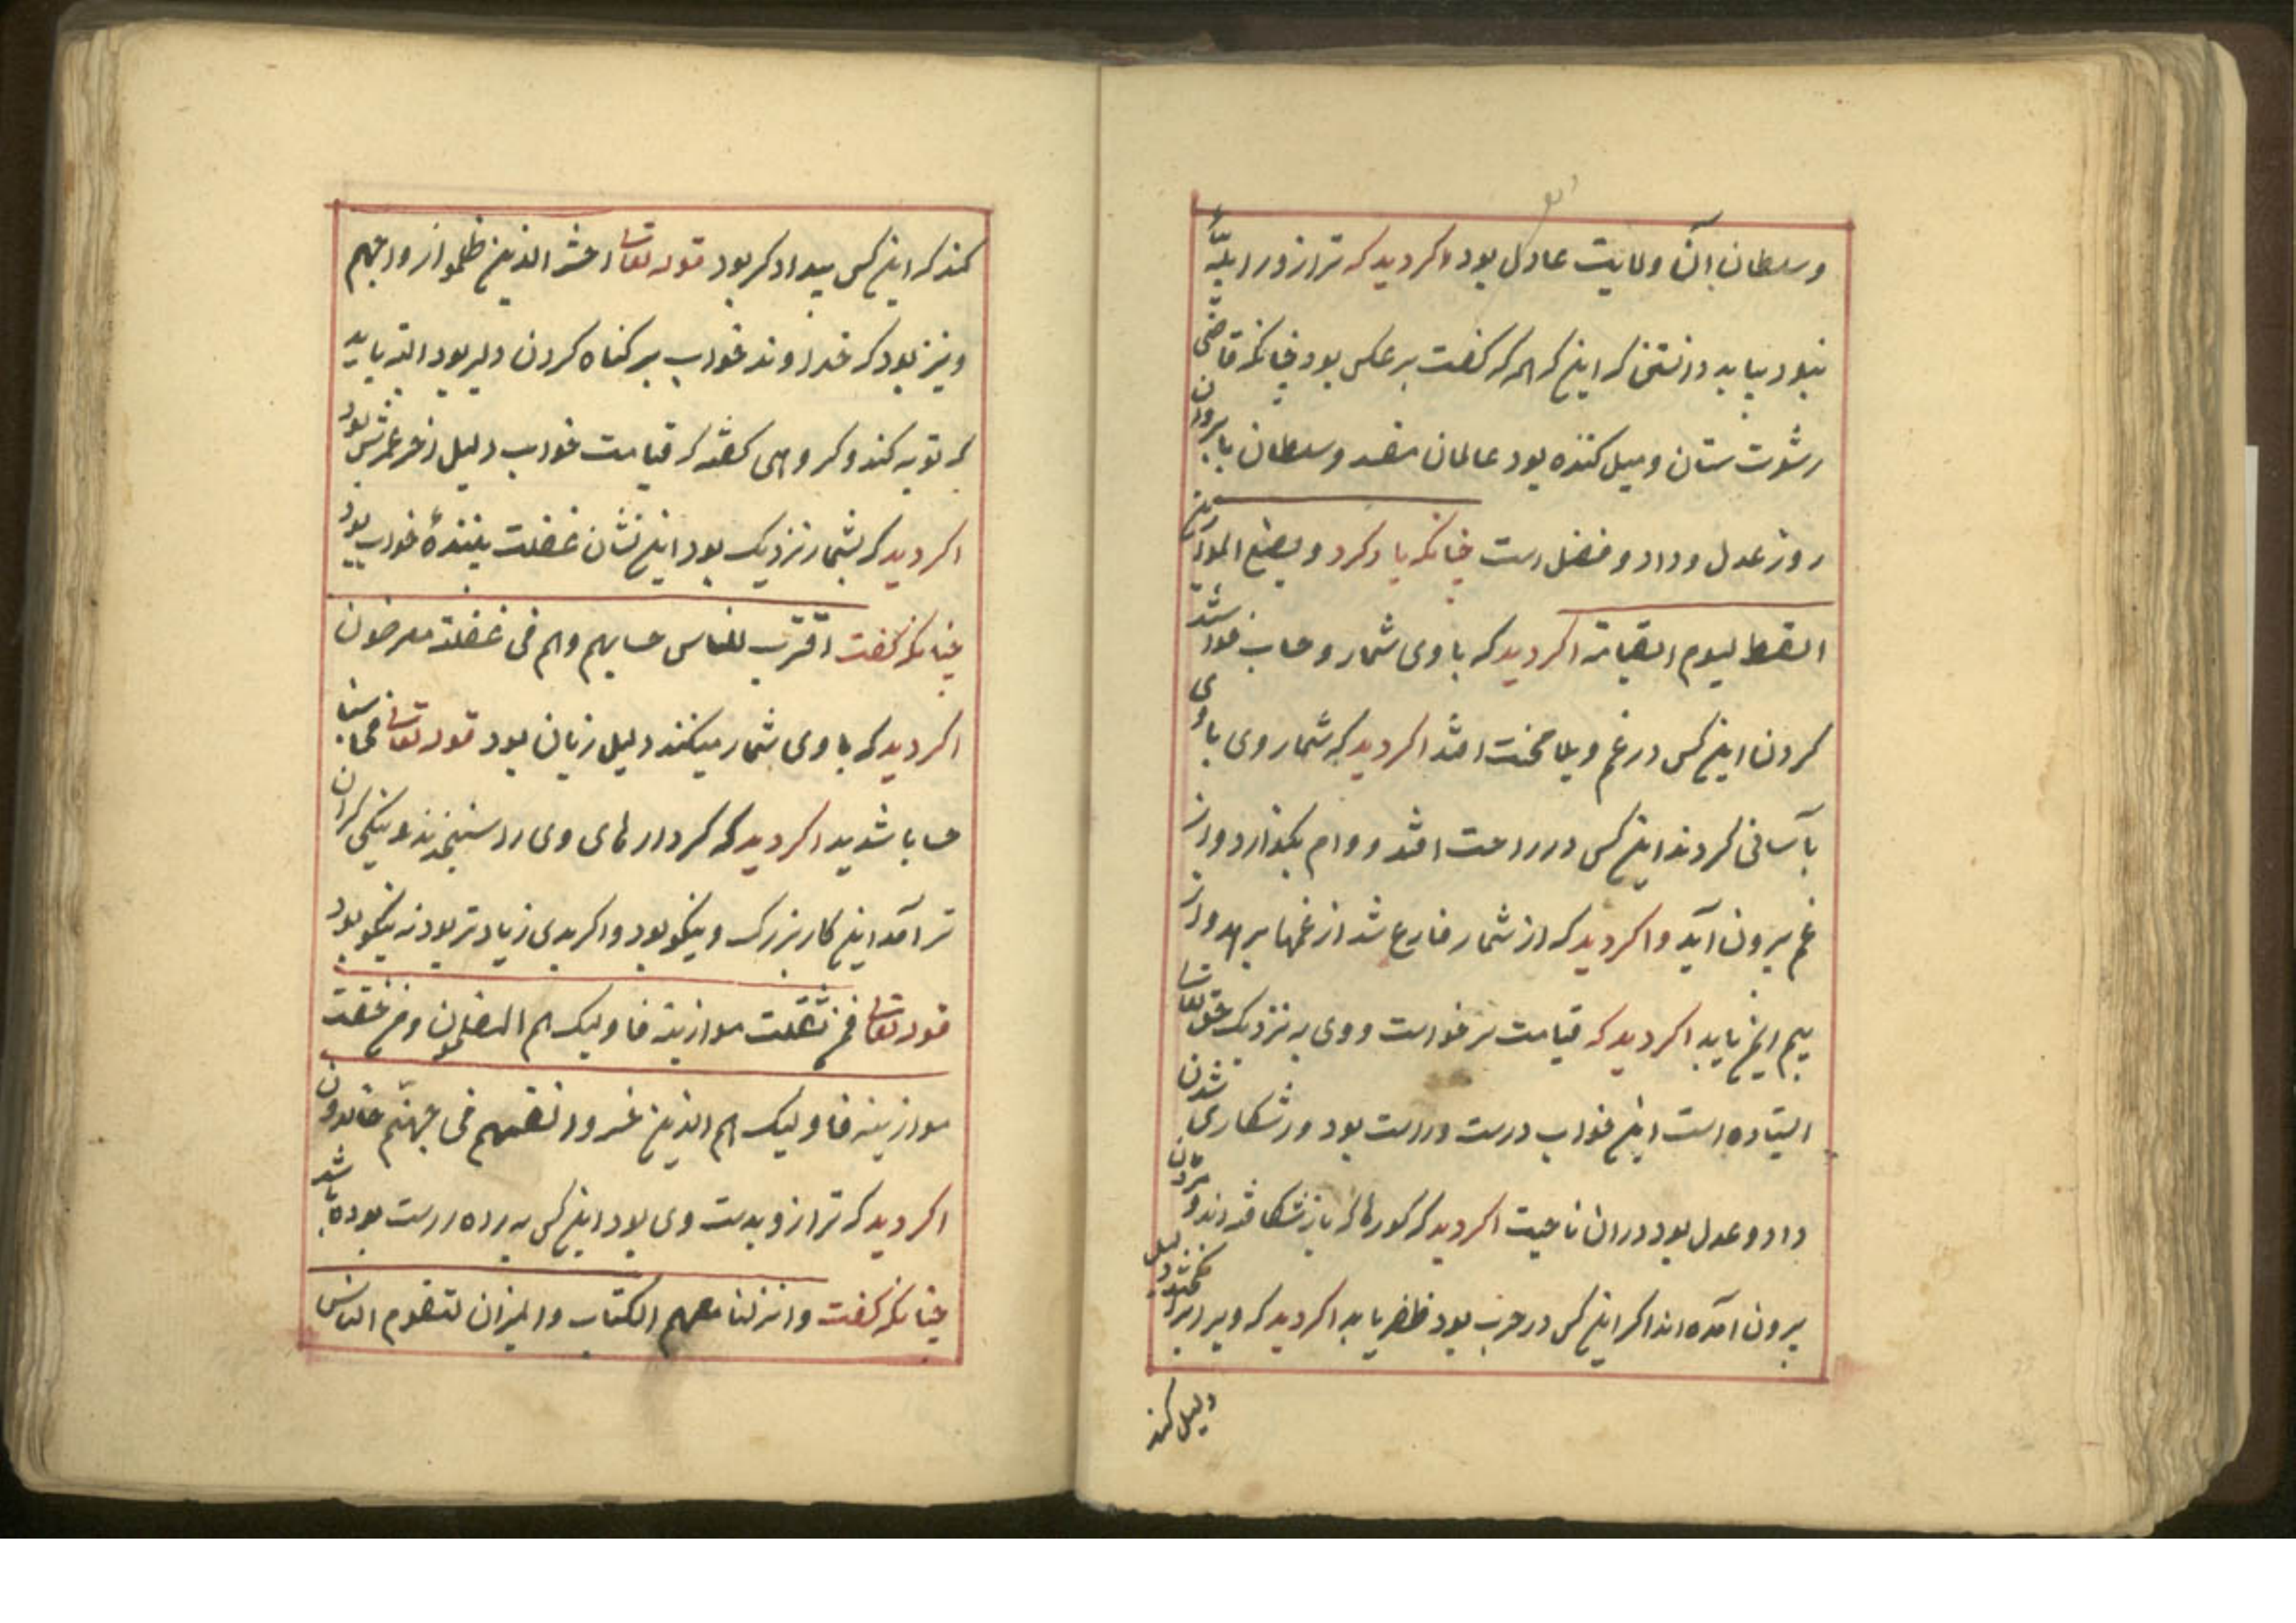 وسلطان آن ولایت عادل بود اکر دید که ترازو را پلّهٔ
نبود بباید دانستن که این که هر که کفت بر عکس بود چنانکه قاضی
رشوت ستان و میل کننده بود عالمان مفسد و سلطان با برون
روز عدل و داد و فضل است چنانکه یاد کرد و یضع الموازین
القسط لیوم القیامة اکر دید که با وی شمار و حساب خواستند
کردن این کس در غم و بلا محنت افتد اکر دید که شمار وی با وی
بآسانی کردند این کس در راحت افتد و وام بکذارد و از
غم بیرون آید و اکر دید که از شمار فارغ شد از غمها برهد و از
بیم ایمن یابد اکر دید که قیامت برخواست و وی به نزدیک حق تعالی
ایستاده است این خواب درست و راست بود و رستکاری شدن
داد و عدل بود دران ناحیت اکر دید که کورها که باز شکافته اند و مردن
بیرون آمده اند اکر این کس در حرب بود ظفر یابد اکر دید که ویرا
دلیل کند
کند که این کس بیدادکر بود قوله تعالی احشر الذین ظلموا ازواجهم
و نیز بود که خداوند خواب بر کناه کردن دلیر بود البته باید
که توبه کند و کروهی کفته که قیامت خواب دلیل آخر عمرش بود
اکر دید که بشمار نزدیک بود این نشان غفلت بینندهٔ خواب بود
چنانکه کفت اقترب للناس حسابهم وهم فی غفلة معرضون
اکر دید که با وی شمار میکنند دلیل زیان بود قوله تعالی فحاسبنا
حسابا شدید اکر دید که کردارهای وی را سنجیدند و نیکی کران
تر آمد این کار بزرک و نیکو بود و اکر بدی زیادتر بود نه نیکو بود
قوله تعالی فمن ثقلت موازینه فاولیک هم المفلحون ومن خفت
موازینه فاولیک هم الذین خسروا انفسهم فی جهنّم خالدون
اکر دید که ترازو بدست وی بود این کس به راه راست بوده باشد
چنانکه کفت وانزلنا معهم الکتاب والمیزان لتقوم الناس